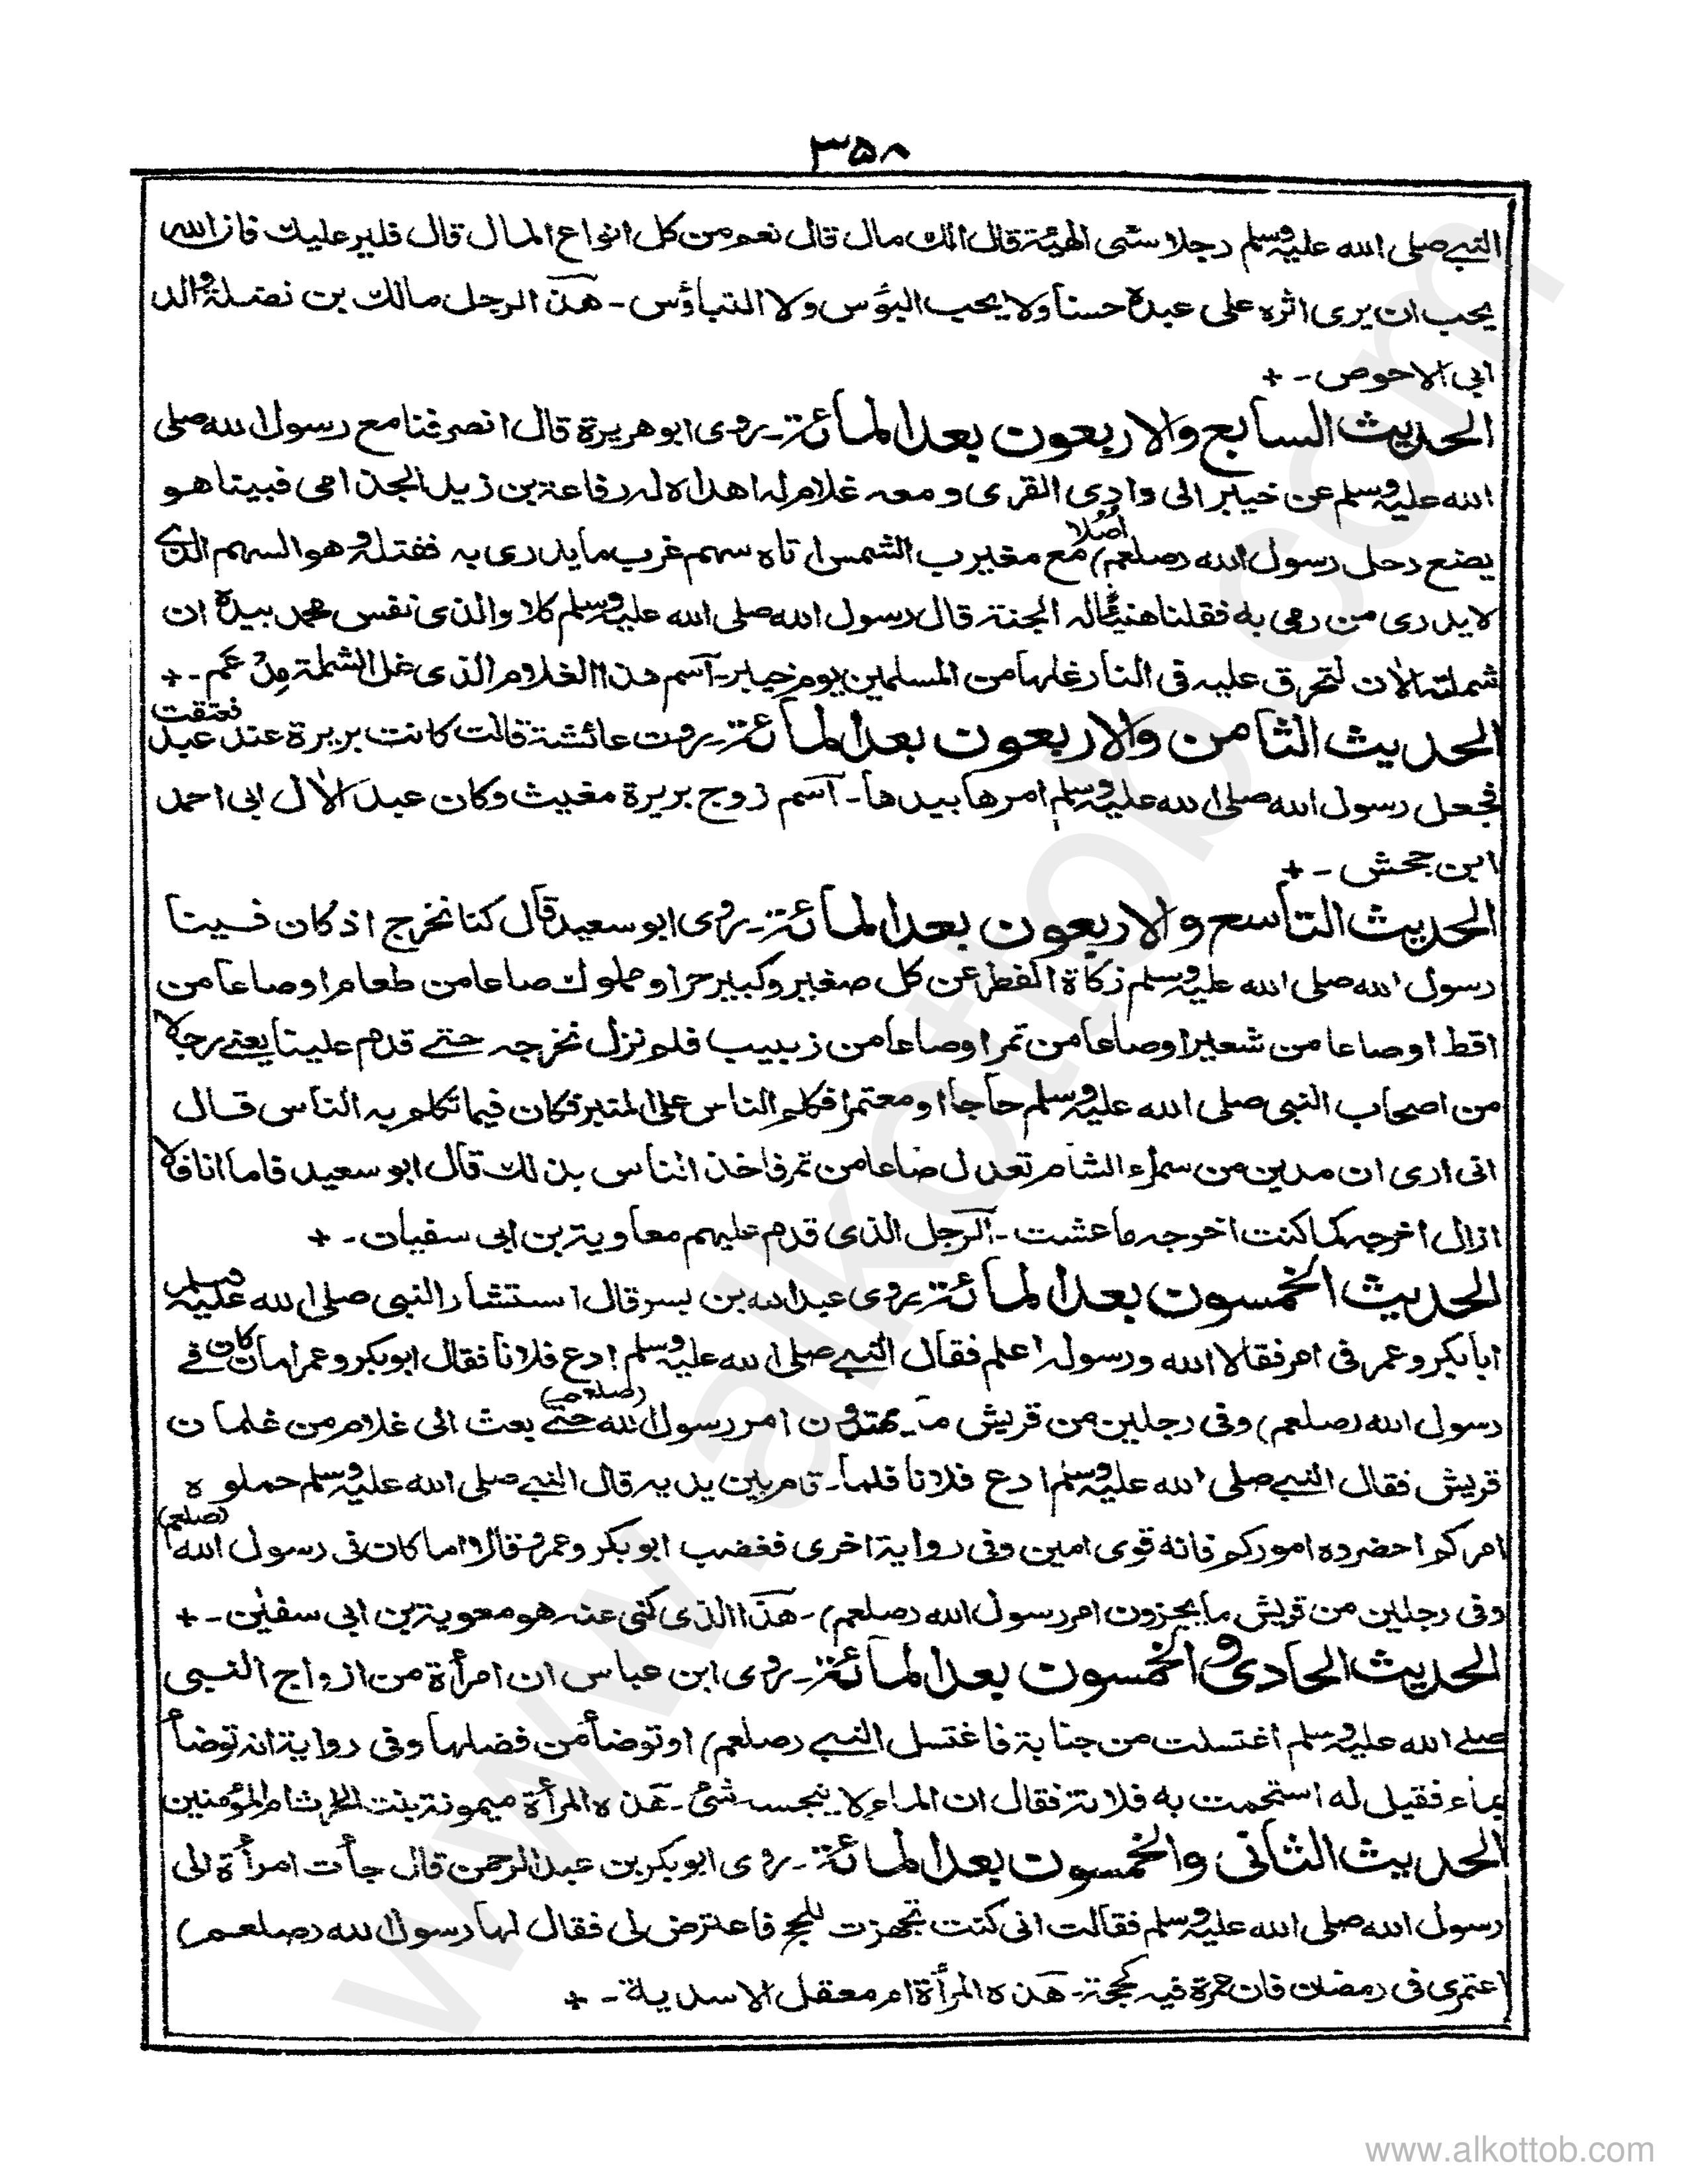 ۳۵۸
النبی صلی الله علیه وسلم رجلا سئی الهیئة قال الك مال قال نعم من كل انواع المال قال فلیر علیك فان الله
یحب ان یری اثره علی عبده حسنا ولا یحب البؤس ولا التباؤس - هذا الرجل مالك بن نضلة والد
ابی الاحوص - +
الحدیث السابع والاربعون بعد المائة - روی ابو هریرة قال انصرفنا مع رسول الله صلی
الله علیه وسلم عن خیبر الی وادی القری ومعه غلام له اهداه له رفاعة بن زید الجذامی فبینا هو
یضع رحل رسول الله (صلعم) اصلا مع مغیرب الشمس اتاه سهم غرب ما یدری به فقتله وهو السهم الذی
لا یدری من رمی به فقلنا هنیئا له الجنة قال رسول الله صلی الله علیه وسلم كلا والذی نفس محمد بیده ان
شملته الان لتحرق علیه فی النار غلها من المسلمین یوم خیبر - آسم هذا الغلام الذی غل الشملة مدعم - +
الحدیث الثامن والاربعون بعد المائة - روت عائشة قالت كانت بریرة عند عبد فعتقت
فجعل رسول الله صلی الله علیه وسلم امرها بیدها - آسم زوج بریرة مغیث وكان عبد الال ابی احمد
ابن جحش - +
الحدیث التاسع والاربعون بعد المائة - روی ابو سعید قال كنا نخرج اذ كان فینا
رسول الله صلی الله علیه وسلم زكاة الفطر عن كل صغیر وكبیر حر او مملوك صاعا من طعام او صاعا من
اقط او صاعا من شعیر او صاعا من تمر او صاعا من زبیب فلم نزل نخرجه حتی قدم علینا یعنی رجلا
من اصحاب النبی صلی الله علیه وسلم حاجا او معتمرا فكلم الناس علی المنبر فكان فیما تكلم به الناس قال
انی اری ان مدین من سمراء الشام تعدل صاعا من تمر فاخذ الناس بذلك قال ابو سعید فاما انا فلا
ازال اخرجه كما كنت اخرجه ما عشت - آلرجل الذی قدم علیهم معاویة بن ابی سفیان - +
الحدیث الخمسون بعد المائة - روی عبد الله بن بسر قال استشار النبی صلی الله علیه وسلم
ابا بكر وعمر فی امر فقالا الله ورسوله اعلم فقال النبی صلی الله علیه وسلم ادع فلانا فقال ابو بكر وعمر اما كان فی
رسول الله (صلعم) وفی رجلین من قریش ما امر رسول الله (صلعم) حتی بعث الی غلام من غلمان
قریش فقال النبی صلی الله علیه وسلم ادع فلانا فلما - قام بین یدیه قال النبی صلی الله علیه وسلم حملوه
امركم احضروه اموركم فانه قوی امین وفی روایة اخری فغضب ابو بكر وعمر وقالا اما كان فی رسول الله (صلعم)
وفی رجلین من قریش ما یجزون امر رسول الله (صلعم) - هذا الذی كنی عنه هو معویة بن ابی سفین - +
الحدیث الحادی والخمسون بعد المائة - روی ابن عباس ان امرأة من ازواج النبی
صلی الله علیه وسلم اغتسلت من جنابة فاغتسل النبی (صلعم) او توضأ من فضلها وفی روایة انه توضأ
بماء فقیل له استحمت به فلانة فقال ان الماء لا ینجسه شئ - هذه المرأة میمونة بنت الحارث ام المؤمنین
الحدیث الثانی والخمسون بعد المائة - روی ابو بكر بن عبد الرحمن قال جأت امرأة الی
رسول الله صلی الله علیه وسلم فقالت انی كنت تجهزت للحج فاعترض لی فقال لها رسول الله (صلعم)
اعتمری فی رمضان فان عمرة فیه كحجة - هذه المرأة ام معقل الاسدیة - +
www.alkottob.com
www.alkottob.com